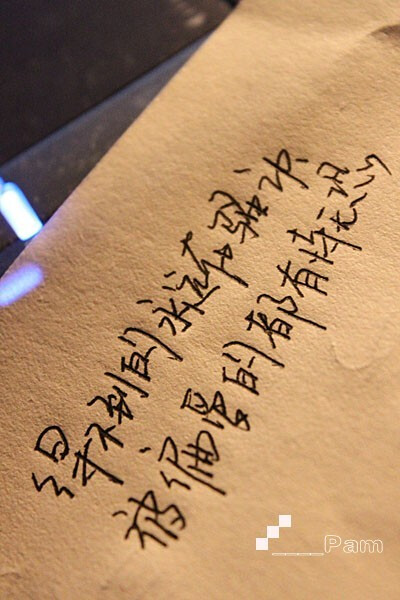 得不到的永远在骚动
被偏爱的都有恃无恐
____Pam